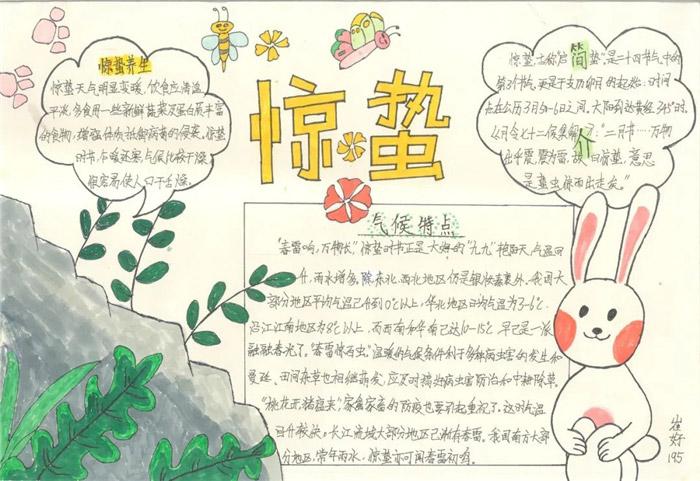 惊蛰
惊蛰养生
惊蛰天气明显变暖,饮食应清温
平淡,多食用一些新鲜蔬菜及蛋白质丰富
的食物,增强体质抵御病毒的侵袭。惊蛰
时节,乍暖还寒,气候比较干燥,
很容易使人口干舌燥。
简介
惊蛰,古称“启蛰”,是二十四节气中的
第3个节气,更是干支历卯月的起始;时间
点在公历3月5-6日之间,太阳到达黄经345°时。
《月令七十二候集解》:“二月节……万物
出乎震,震为雷,故曰惊蛰,意思
是蛰虫惊而出走矣。”
气候特点
“春雷响,万物长”,惊蛰时节正是大好的“九九”艳阳天,气温回
升,雨水增多。除东北、西北地区仍是银装素裹外,我国大
部分地区平均气温已升到0℃以上,华北地区日均气温为3-6℃,
沿江江南地区为8℃以上,而西南和华南已达10-15℃,早已是一派
融融春光了。“春雷惊百虫”,温暖的气候条件利于多种病虫害的发生和
蔓延,田间杂草也相继萌发,应及时搞好病虫害防治和中耕除草。
“桃花开,猪瘟来”,家禽家畜的防疫也要引起重视了。这时气温
回升较快,长江流域大部分地区已渐有春雷。我国南方大部
分地区,常年雨水、惊蛰亦可闻春雷初鸣。
195